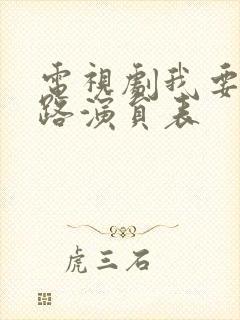 電視劇我要
路演員表
虎三石